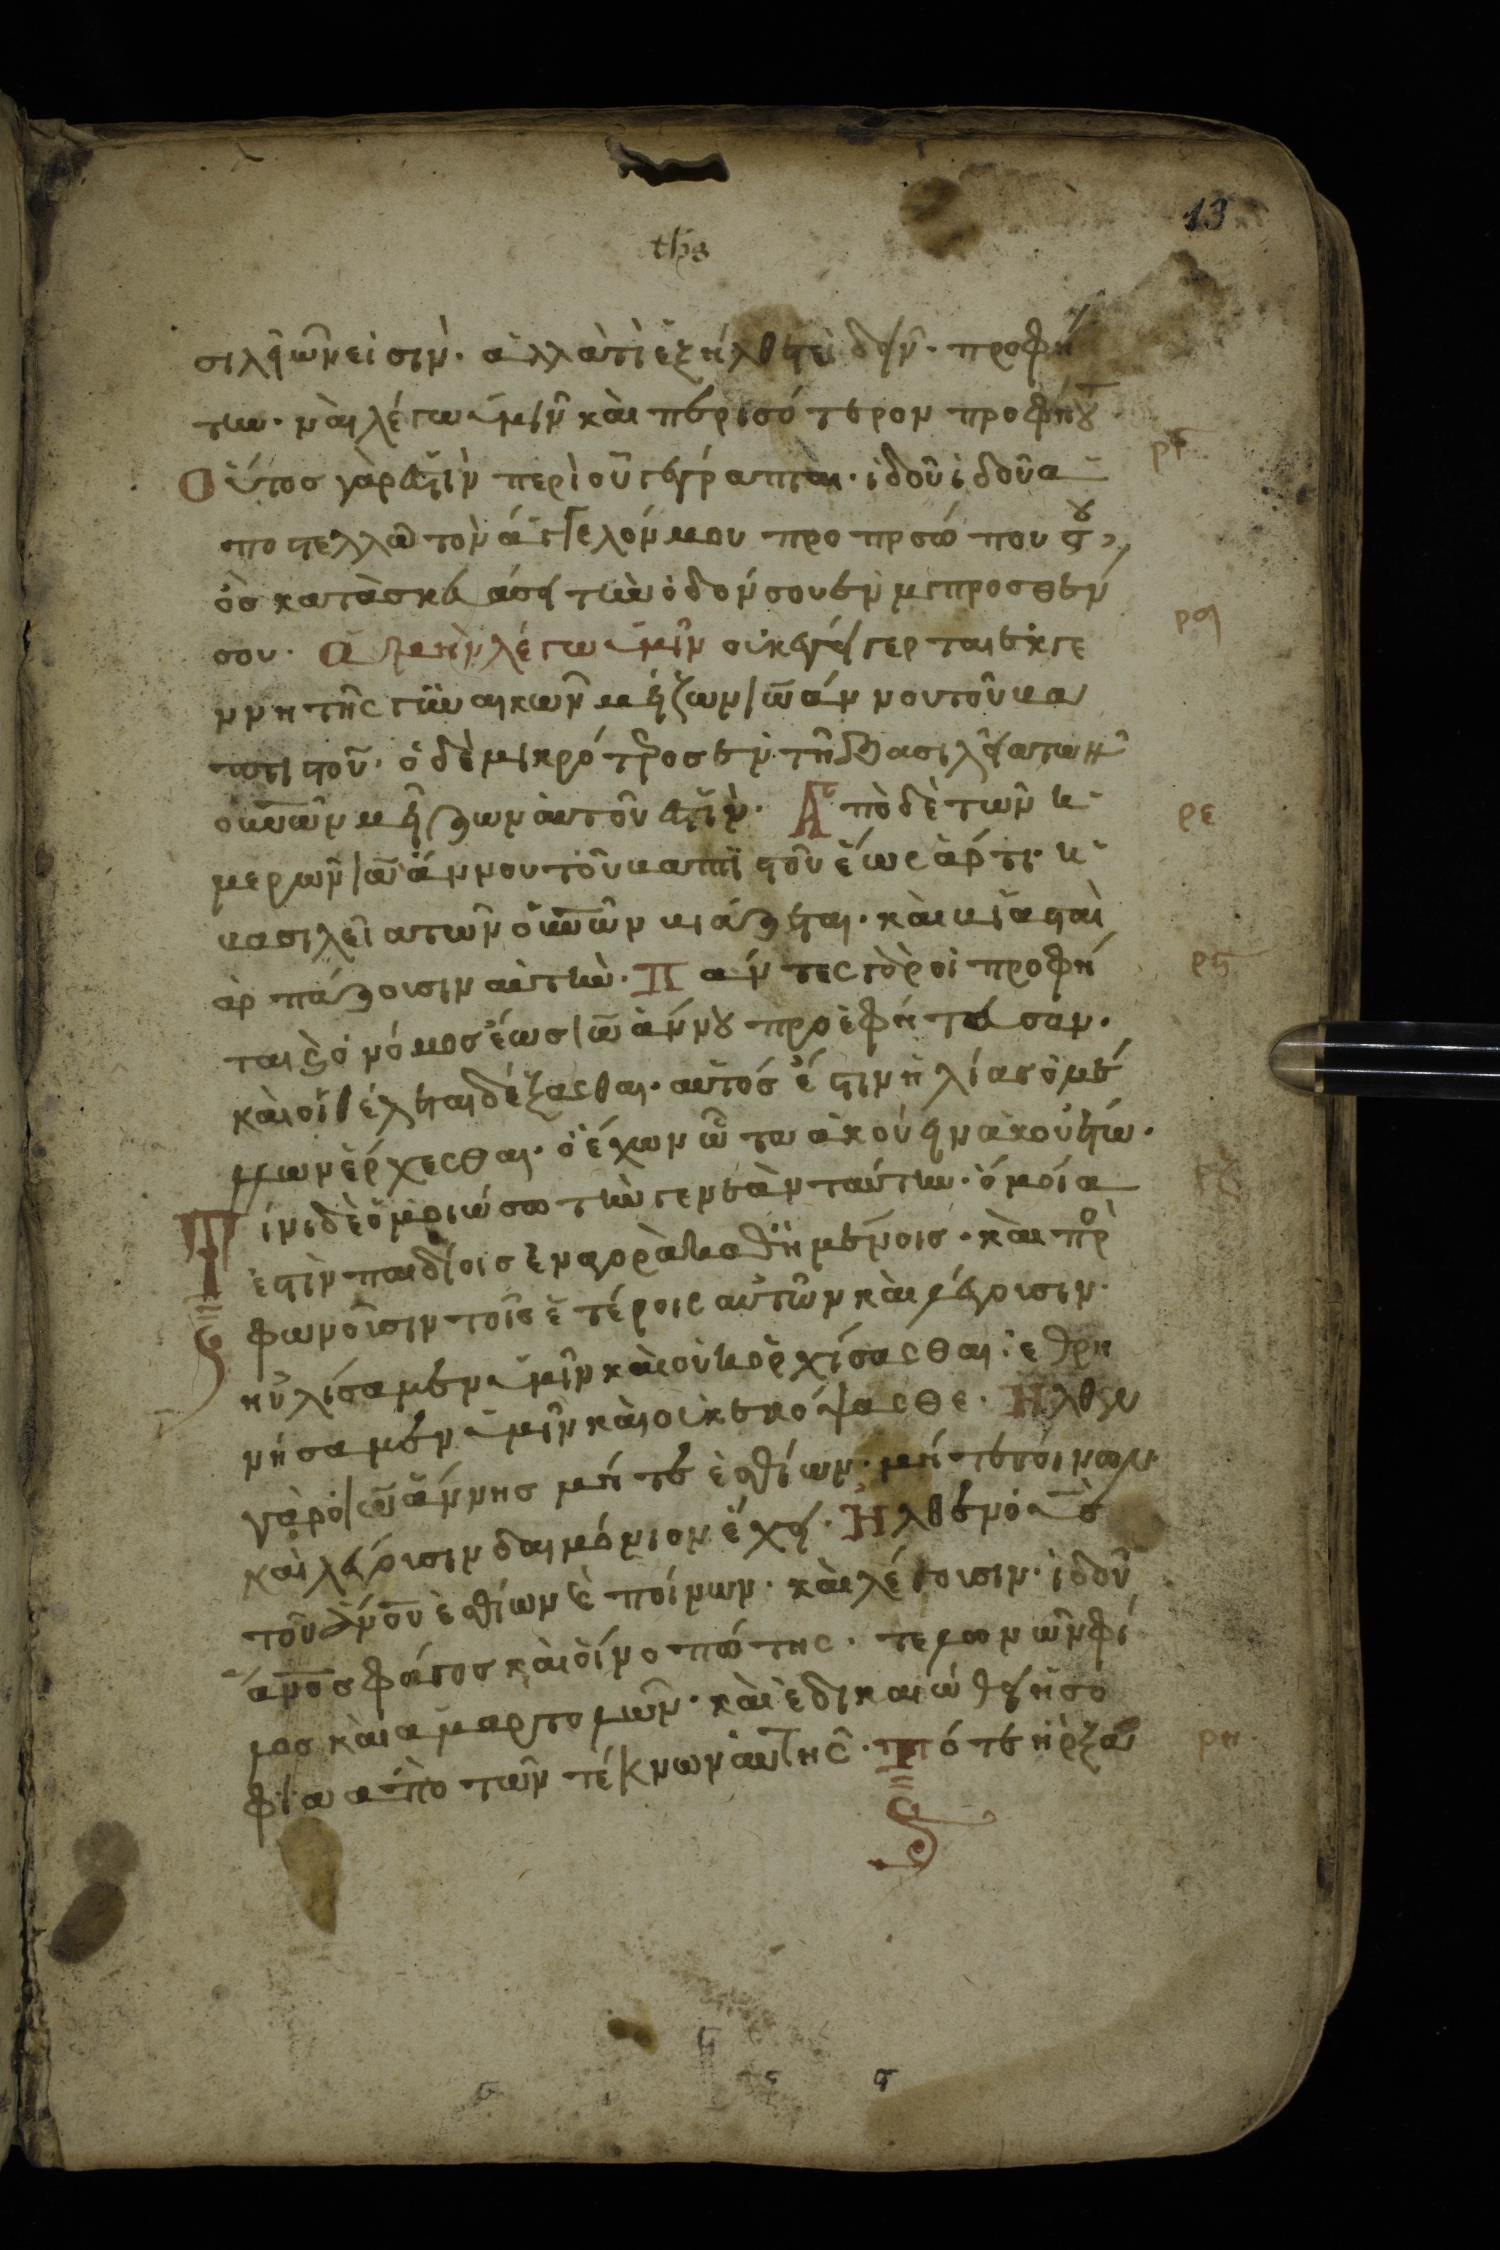 13
ths
σιλείων εἰσίν. ἀλλὰ τί ἐξήλθετε ἰδεῖν. προφή
την. ναὶ λέγω ὑμῖν καὶ περισότερον προφήτου
Οὗτος γὰρ ἐστὶν περὶ οὗ γέγραπται. ἰδοῦ ἰδοῦ ἀ
ποστελλῶ τὸν ἄγγελόν μου προ προσώπου σου,
ὃς κατασκευάσει τὴν ὁδόν σου ἔνμπροσθεν
σου. Ἀμὴν λέγω ὑμῖν οὐκ ἐγείγερται ἐκ γε
ννητῆς γυναικῶν μείζων ἰωάννου τοῦ βα
πτιστοῦ. ὁ δὲ μικρότερος ἐν τῆ βασιλεία τῶν
οὐνῶν μείζων αὐτοῦ ἐστίν. Ἀπὸ δὲ τῶν ἡ
μερῶν ἰωάννου τοῦ βαπτιστοῦ ἕως ἄρτι. ἡ
βασιλεία τῶν οὐνῶν βιάζεται. καὶ βιασταὶ
ἁρπάζουσιν αὐτήν. Πάντες γὰρ οἱ προφή
ται καὶ ὁ νόμος ἕως ἰωάννου προεφήτευσαν.
καὶ οἱ θέλεται δέξασθαι. αὐτός ἐστιν ἠλίας ὁ μέ
λλων ἔρχεσθαι. ὁ ἔχων ὦτα ἀκούειν ἀκουέτω.
Τίνι δὲ ὁμοιώσω τὴν γενεὰν ταύτην. ὁμοία
ἐστὶν παιδίοις ἐν ἀγορὰ καθημένοις. καὶ προ
φωνοῦσιν τοῖς ἑτέροις αὐτῶν καὶ λέγουσιν.
ηὐλίσαμεν ὑμῖν καὶ οὐκ ὀρχίσασθαι. ἐθρη
νήσαμεν ὑμῖν καὶ οὐκ ἐκόψασθε. Ἦλθεν
γὰρ ὁ ἰωάννης μήτε ἐσθίων. μήτε πίνων.
καὶ λέγουσιν δαιμόνιον ἔχει. Ἦλθεν ὁ υς
τοῦ ἀνου ἐσθίων καὶ πίνων. καὶ λέγουσιν. ἰδοῦ
ἄνος φάγος καὶ οἰνοπώτης. τελωνῶν φί
λος καὶ ἁμαρτολῶν. καὶ ἐδικαιώθει ἡ σο
φία ἀπὸ τῶν τέκνων αὐτῆς. Τότε ἤρξα
ρε
ρϛ
ρη